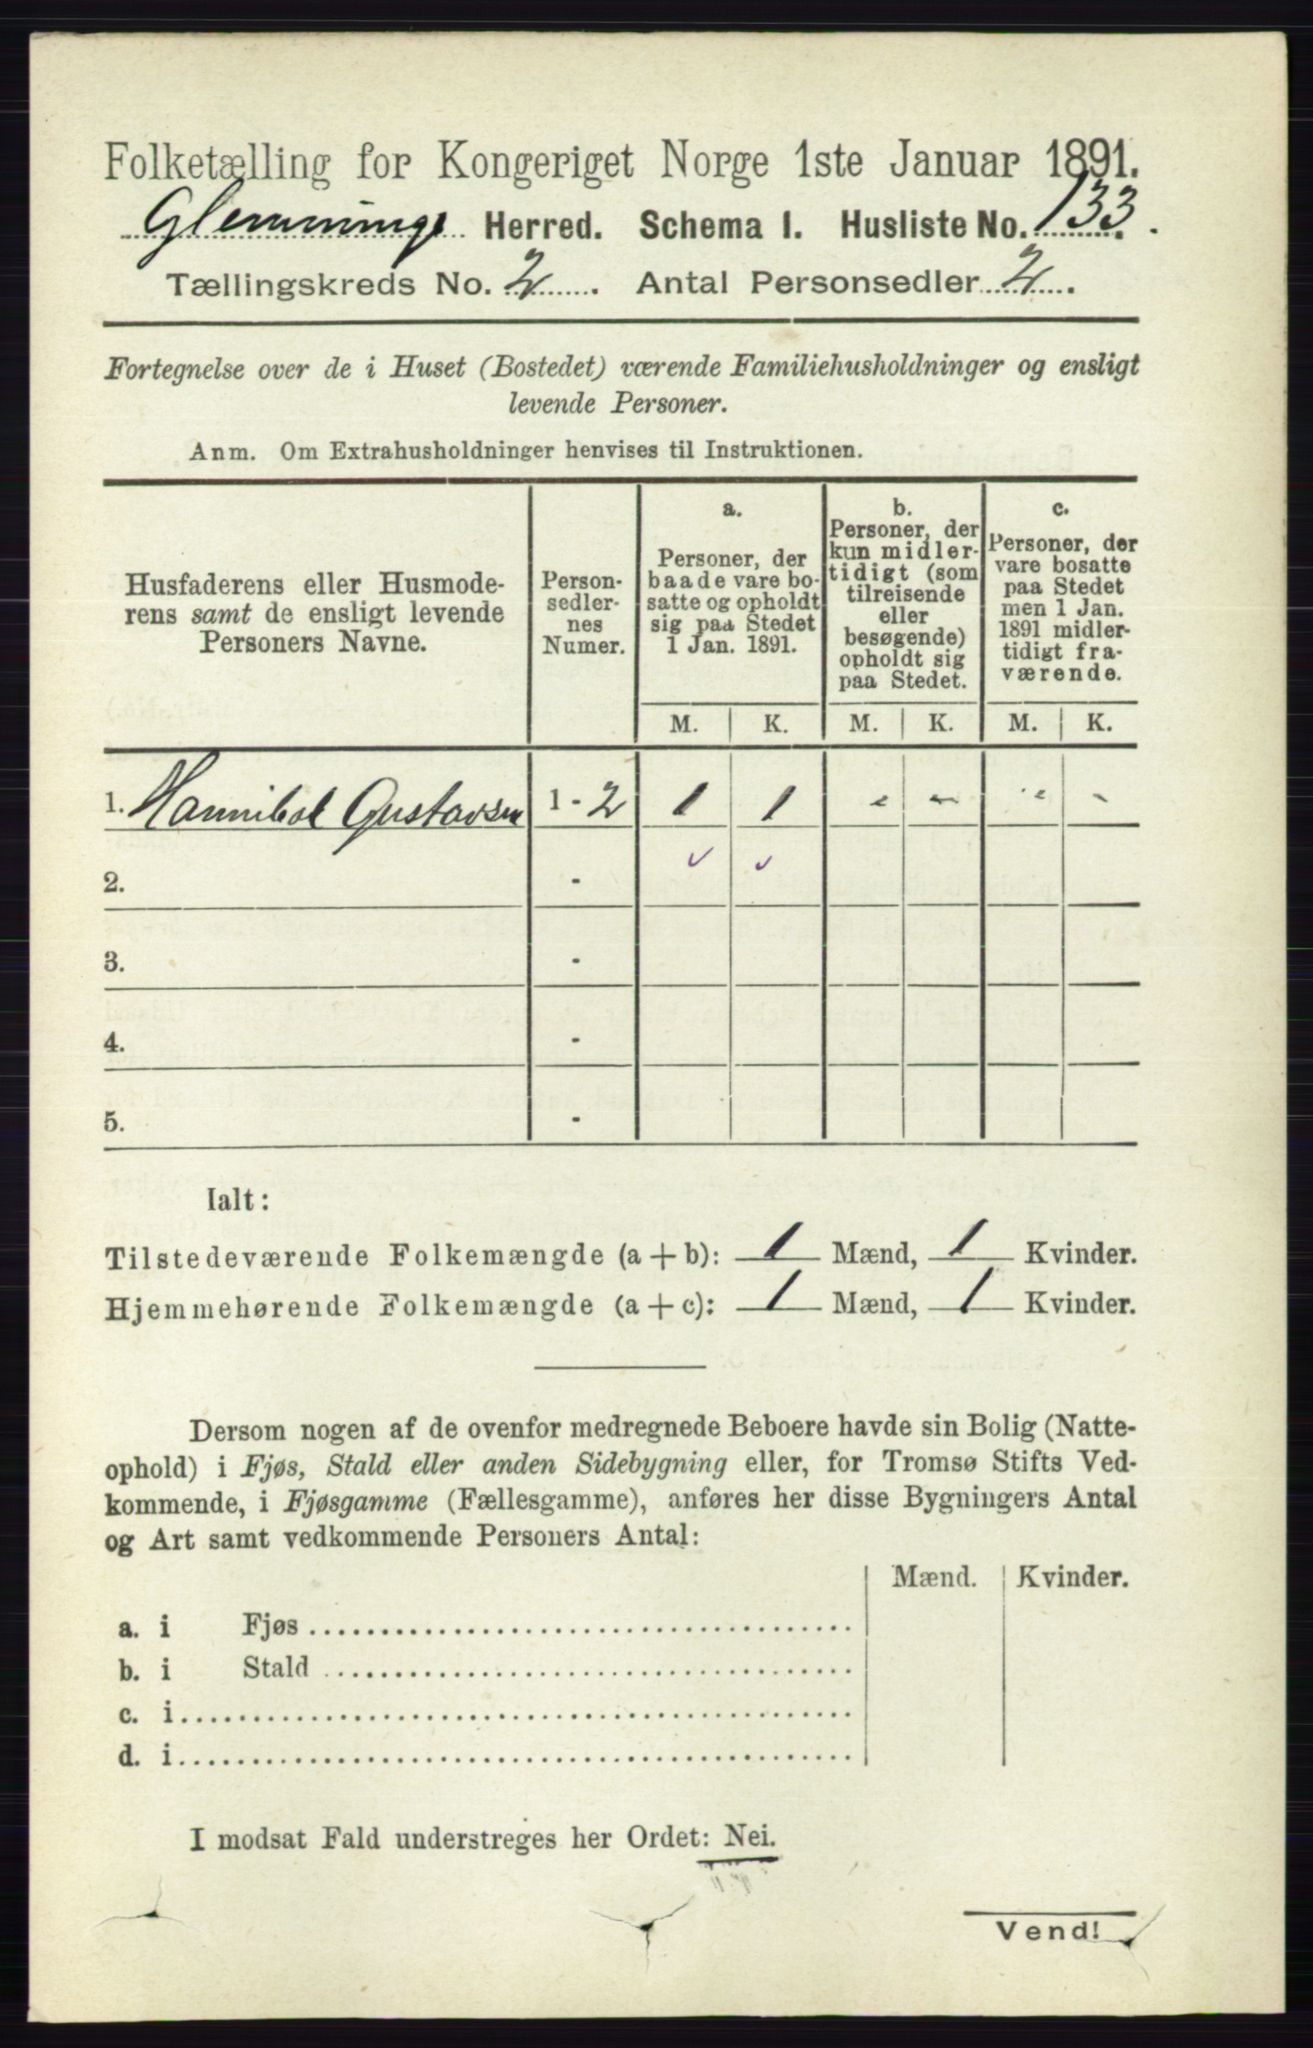 Folketælling for Kongeriget Norge 1ste Januar 1891.
Glemminge Herred. Schema I. Husliste No. 133.
Tællingskreds No. 2. Antal Personsedler 2.
Fortegnelse over de i Huset (Bostedet) værende Familiehusholdninger og ensligt
levende Personer.
Anm. Om Extrahusholdninger henvises til Instruktionen.
Husfaderens eller Husmode-
rens samt de ensligt levende
Personers Navne.
Person-
sedler-
nes
Numer.
a.
Personer, der
baade vare bo-
satte og opholdt
sig paa Stedet
1 Jan. 1891.
b.
Personer, der
kun midler-
tidigt (som
tilreisende
eller
besøgende)
opholdt sig
paa Stedet.
c.
Personer, der
vare bosatte
paa Stedet
men 1 Jan.
1891 midler-
tidigt fra-
værende.
M. K. M. K. M. K.
1. Hannibal Gustavsen 1 - 2 1 1 - - - -
2. - ✓ ✓
3. -
4. -
5. -
Ialt:
Tilstedeværende Folkemængde (a + b): 1 Mænd, 1 Kvinder.
Hjemmehørende Folkemængde (a + c): 1 Mænd, 1 Kvinder.
Dersom nogen af de ovenfor medregnede Beboere havde sin Bolig (Natte-
ophold) i Fjøs, Stald eller anden Sidebygning eller, for Tromsø Stifts Ved-
kommende, i Fjøsgamme (Fællesgamme), anføres her disse Bygningers Antal
og Art samt vedkommende Personers Antal:
Mænd. Kvinder.
a. i Fjøs
b. i Stald
c. i
d. i
I modsat Fald understreges her Ordet: Nei.
Vend!